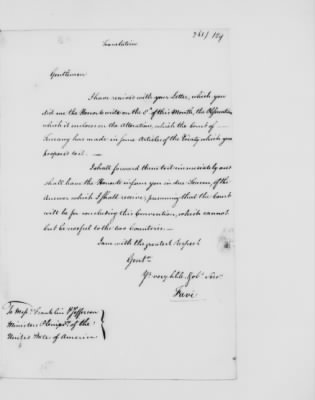 361/ 124
Translation
Gentlemen
I have received with your Letter, which you
did me the Honor to write on the 8th of this Month, the Observations
which it incloses on the Alterations, which the Court of
Tuscany has made in some Articles of the Treaty which you
proposed to it. —
I shall forward them to it immediately and
shall have the Honor to inform you in due Season, of the
Answer which I shall receive, presuming that the Court
will be for concluding this Convention, which cannot
but be useful to the two Countries. —
I am with the greatest respect
Gentn.
Yr very hble & obt. Serv
Favi
To Messrs. Franklin & Jefferson
Ministers Plenipoy. of the
United States of America